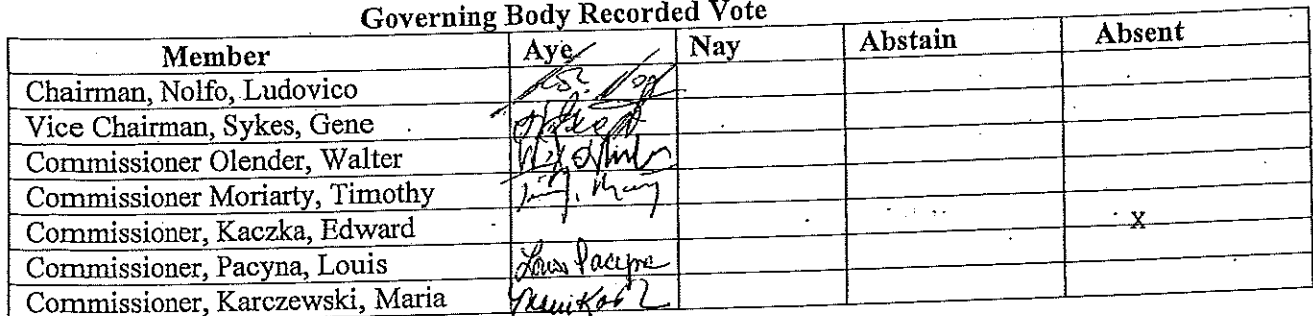 Governing Body Recorded Vote
Member Aye Nay Abstain Absent
Chairman, Nolfo, Ludovico
Vice Chairman, Sykes, Gene
Commissioner Olender, Walter
Commissioner Moriarty, Timothy
Commissioner, Kaczka, Edward X
Commissioner, Pacyna, Louis Louis Pacyna
Commissioner, Karczewski, Maria